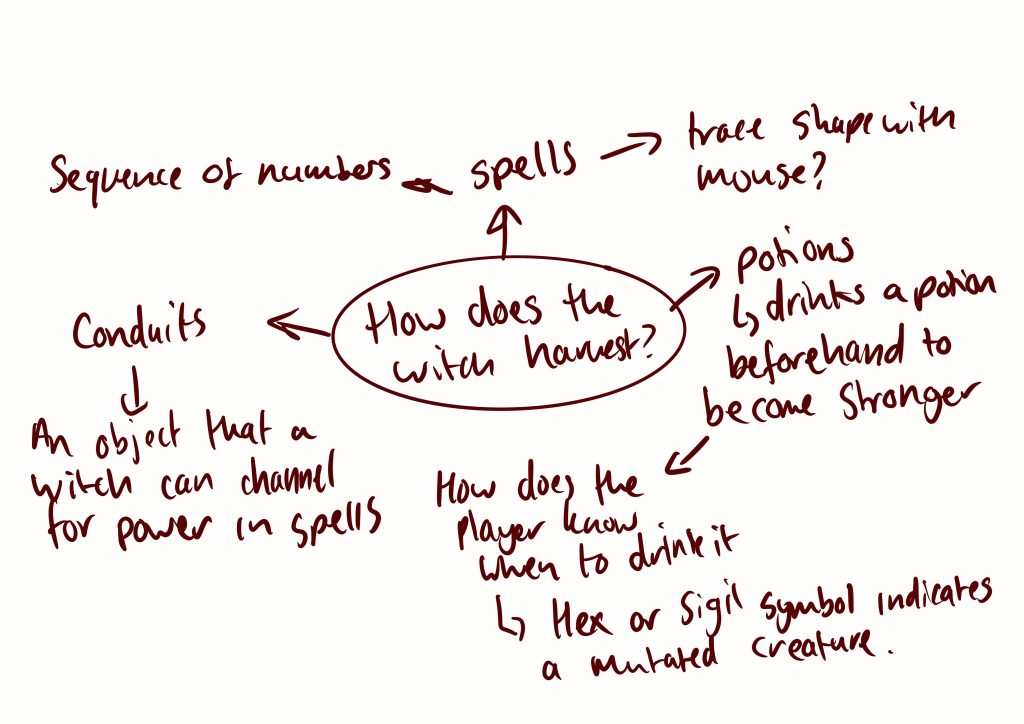 trace shape with
mouse?
Sequence of numbers
spells
potions
↳ drinks a potion
beforehand to
become stronger
How does the
witch harvest?
Conduits
An object that a
witch can channel
for power in spells
How does the
player know
when to drink it
↳ Hex or Sigil symbol indicates
a mutated creature.